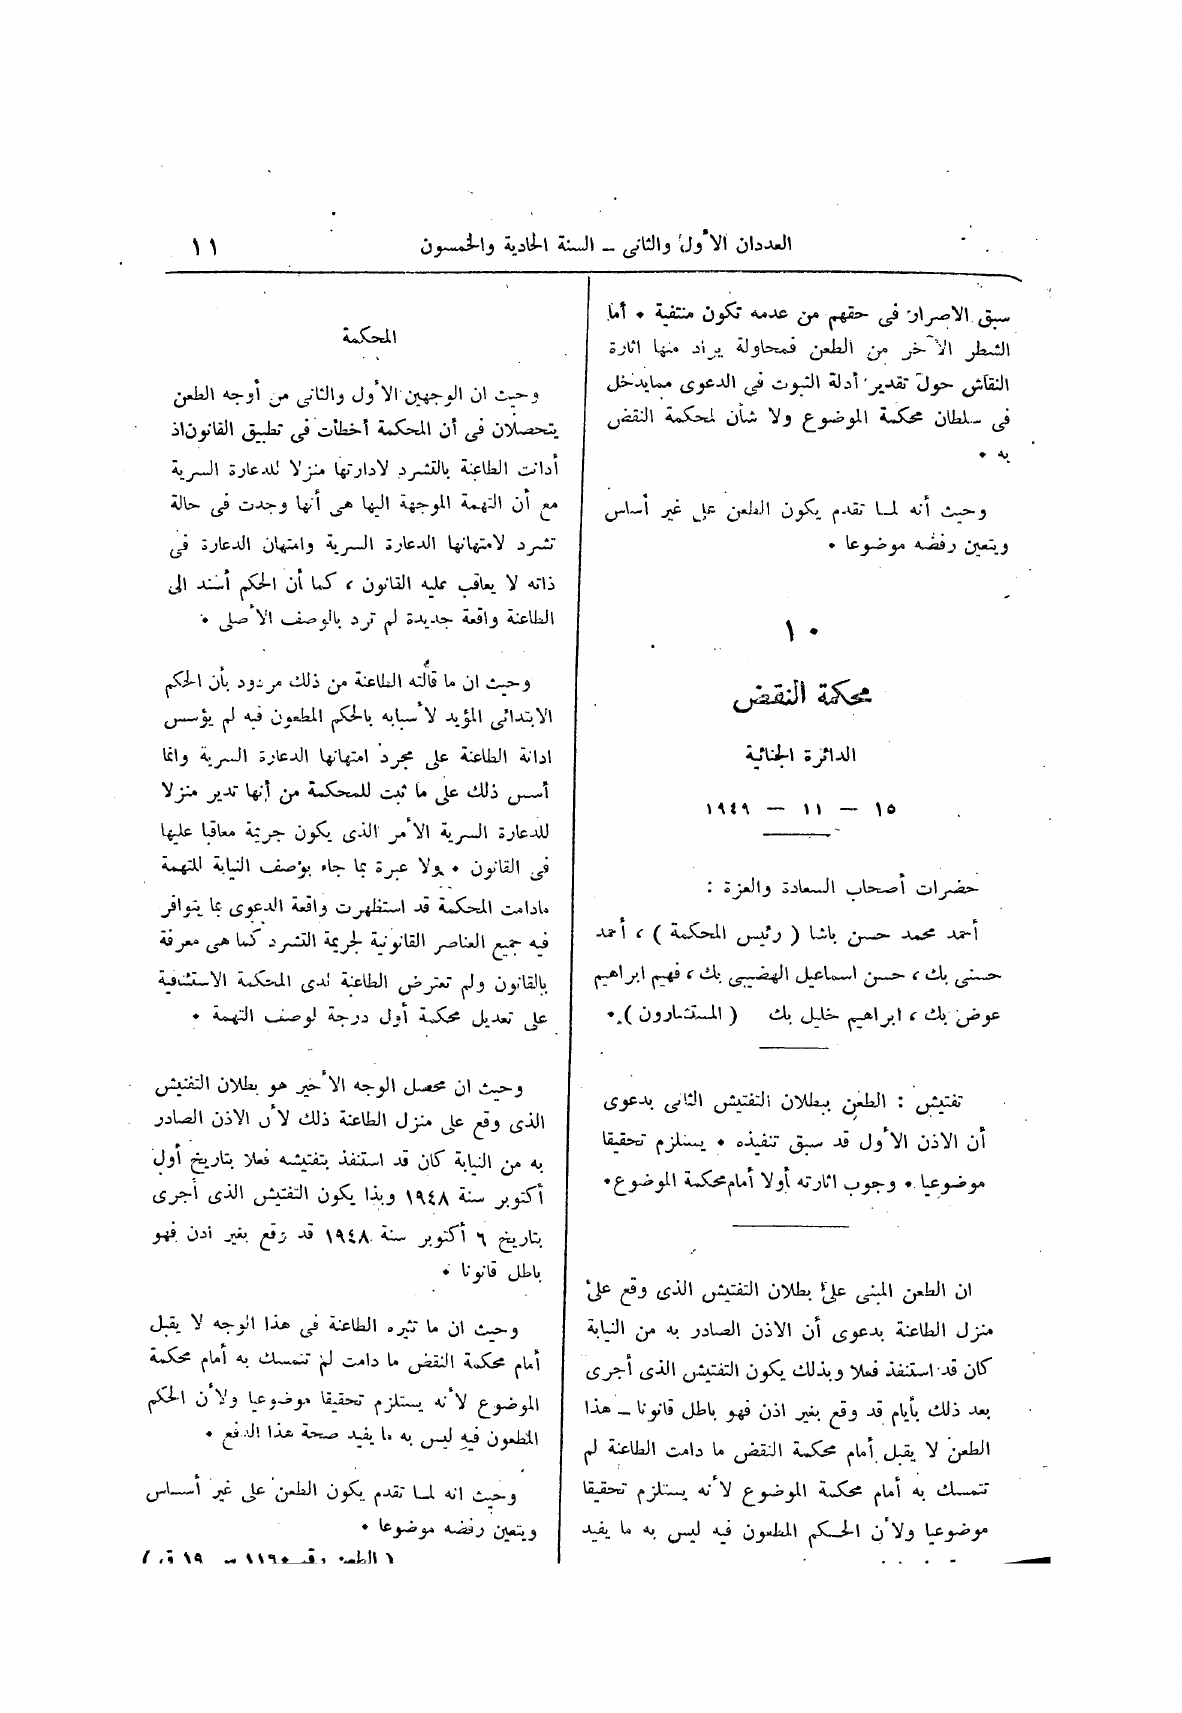 العددان الأول والثانى – السنة الحادية والخمسون
١١
سبق الاصرار فى حقهم من عدمه تكون منتفية • أما
الشطر الآخر من الطعن فمحاولة يراد منها اثارة
النقاش حول تقدير أدلة الثبوت فى الدعوى ممايدخل
فى سلطان محكمة الموضوع ولا شأن لمحكمة النقض
به •
وحيث أنه لما تقدم يكون الطعن على غير أساس
ويتعين رفضه موضوعا •
١٠
محكمة النقض
الدائرة الجنائية
١٥ – ١١ – ١٩٤٩
حضرات أصحاب السعادة والعزة :
أحمد محمد حسن باشا ( رئيس المحكمة ) ، أحمد
حسنى بك ، حسن اسماعيل الهضيبى بك ، فهيم ابراهيم
عوض بك ، ابراهيم خليل بك ( المستشارون ) •
تفتيش : الطعن ببطلان التفتيش الثانى بدعوى
أن الاذن الأول قد سبق تنفيذه • يستلزم تحقيقا
موضوعيا • وجوب اثارته أولا أمام محكمة الموضوع •
ان الطعن المبنى على بطلان التفتيش الذى وقع على
منزل الطاعنة بدعوى أن الاذن الصادر به من النيابة
كان قد استنفذ فعلا وبذلك يكون التفتيش الذى أجرى
بعد ذلك بأيام قد وقع بغير اذن فهو باطل قانونا – هذا
الطعن لا يقبل أمام محكمة النقض ما دامت الطاعنة لم
تتمسك به أمام محكمة الموضوع لأنه يستلزم تحقيقا
موضوعيا ولأن الحكم المطعون فيه ليس به ما يفيد
المحكمة
وحيث ان الوجهين الأول والثانى من أوجه الطعن
يتحصلان فى أن المحكمة أخطأت فى تطبيق القانون اذ
أدانت الطاعنة بالتشرد لادارتها منزلا للدعارة السرية
مع أن التهمة الموجهة اليها هى أنها وجدت فى حالة
تشرد لامتهانها الدعارة السرية وامتهان الدعارة فى
ذاته لا يعاقب عليه القانون ، كما أن الحكم أسند الى
الطاعنة واقعة جديدة لم ترد بالوصف الأصلى •
وحيث ان ما قالته الطاعنة من ذلك مردود بأن الحكم
الابتدائى المؤيد لأسبابه بالحكم المطعون فيه لم يؤسس
ادانة الطاعنة على مجرد امتهانها الدعارة السرية وانما
أسس ذلك على ما ثبت للمحكمة من أنها تدير منزلا
للدعارة السرية الأمر الذى يكون جريمة معاقبا عليها
فى القانون • ولا عبرة بما جاء بوصف النيابة للتهمة
مادامت المحكمة قد استظهرت واقعة الدعوى بما يتوافر
فيه جميع العناصر القانونية لجريمة التشرد كما هى معرفة
بالقانون ولم تعترض الطاعنة لدى المحكمة الاستئنافية
على تعديل محكمة أول درجة لوصف التهمة •
وحيث ان محصل الوجه الأخير هو بطلان التفتيش
الذى وقع على منزل الطاعنة ذلك لأن الاذن الصادر
به من النيابة كان قد استنفذ بتفتيشه فعلا بتاريخ أول
أكتوبر سنة ١٩٤٨ وبذا يكون التفتيش الذى أجرى
بتاريخ ٦ أكتوبر سنة ١٩٤٨ قد وقع بغير اذن فهو
باطل قانونا •
وحيث ان ما تثيره الطاعنة فى هذا الوجه لا يقبل
أمام محكمة النقض ما دامت لم تتمسك به أمام محكمة
الموضوع لأنه يستلزم تحقيقا موضوعيا ولأن الحكم
المطعون فيه ليس به ما يفيد صحة هذا الدفع •
وحيث انه لما تقدم يكون الطعن على غير أساس
ويتعين رفضه موضوعا •
( الطعن رقم ١١٦٠ – ١٩ ق )